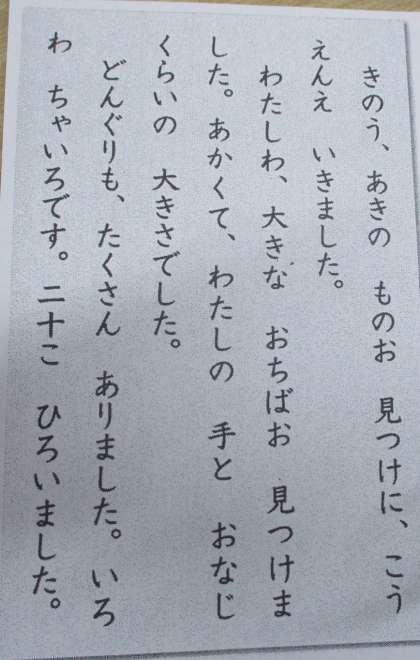 きのう、あきの ものお 見つけに、こう
えんえ いきました。
わたしわ、大きな おちばお 見つけま
した。あかくて、わたしの 手と おなじ
くらいの 大きさでした。
どんぐりも、たくさん ありました。いろ
わ ちゃいろです。二十こ ひろいました。